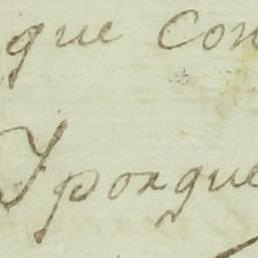 que con
Y porque